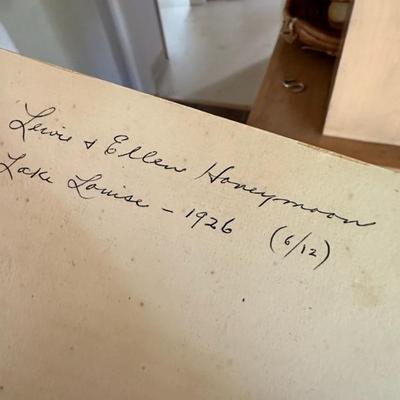 Lewis & Ellen Honeymoon
Lake Louise - 1926 (6/12)